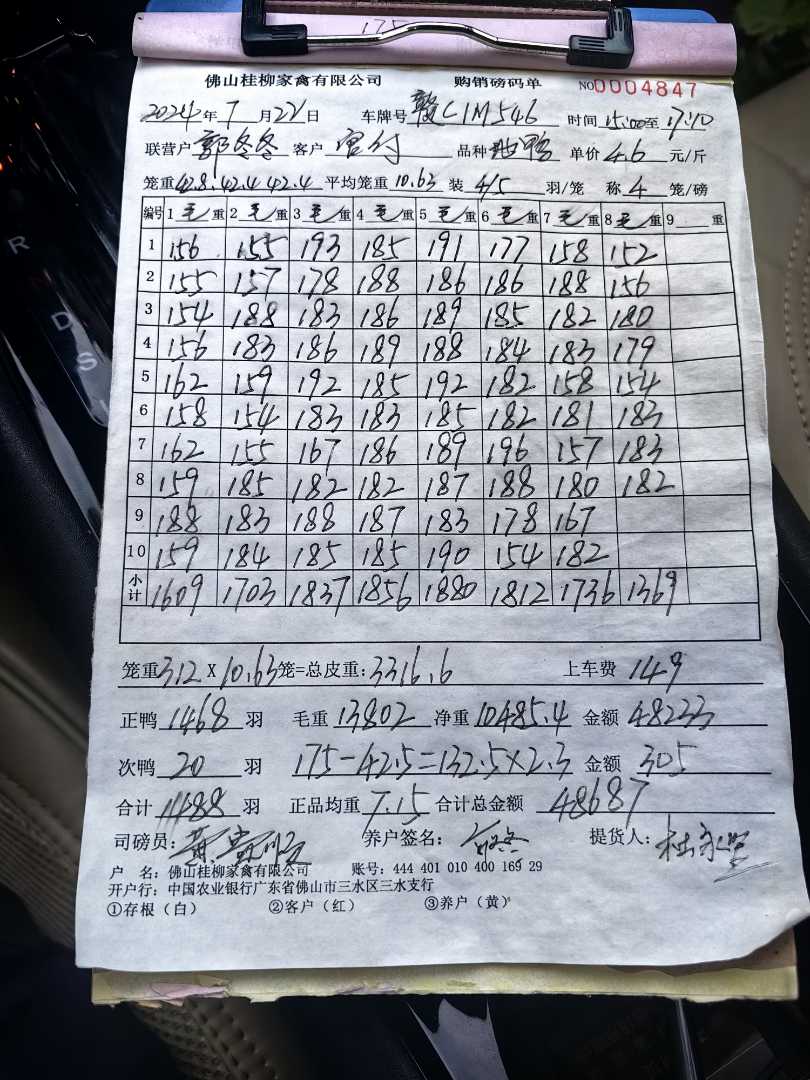 175
佛山桂柳家禽有限公司 购销磅码单 NO0004847
2024年7月22日 车牌号 赣C1M546 时间 15:00至17:10
联营户 郭冬冬 客户 官付 品种 鸭 单价 4.6 元/斤
笼重 42.8.42.4 42.4 平均笼重 10.63 装 4/5 羽/笼 称 4 笼/磅
编号 1毛/重 2毛/重 3毛/重 4毛/重 5毛/重 6毛/重 7毛/重 8毛/重 9 重
1 156 155 193 185 191 177 158 152
2 155 157 178 188 186 186 188 156
3 154 188 183 186 189 185 182 180
4 156 183 186 189 188 184 183 179
5 162 159 192 185 192 182 158 154
6 158 154 183 183 185 182 181 183
7 162 155 167 186 189 196 157 183
8 159 185 182 182 187 188 180 182
9 188 183 188 187 183 178 167
10 159 184 185 185 190 154 182
小计 1609 1703 1837 1856 1880 1812 1736 1369
笼重312X10.63笼=总皮重:3316.6 上车费 149
正鸭 1468 羽 毛重 13802 净重 10485.4 金额 48233
次鸭 20 羽 175-42.5=132.5×2.3 金额 305
合计 1488 羽 正品均重 7.15 合计总金额 48687
司磅员: 黄 养户签名: 提货人: 杜
户 名: 佛山桂柳家禽有限公司 账号: 444 401 010 400 169 29
开户行: 中国农业银行广东省佛山市三水区三水支行
①存根(白) ②客户(红) ③养户(黄)
R
D
S